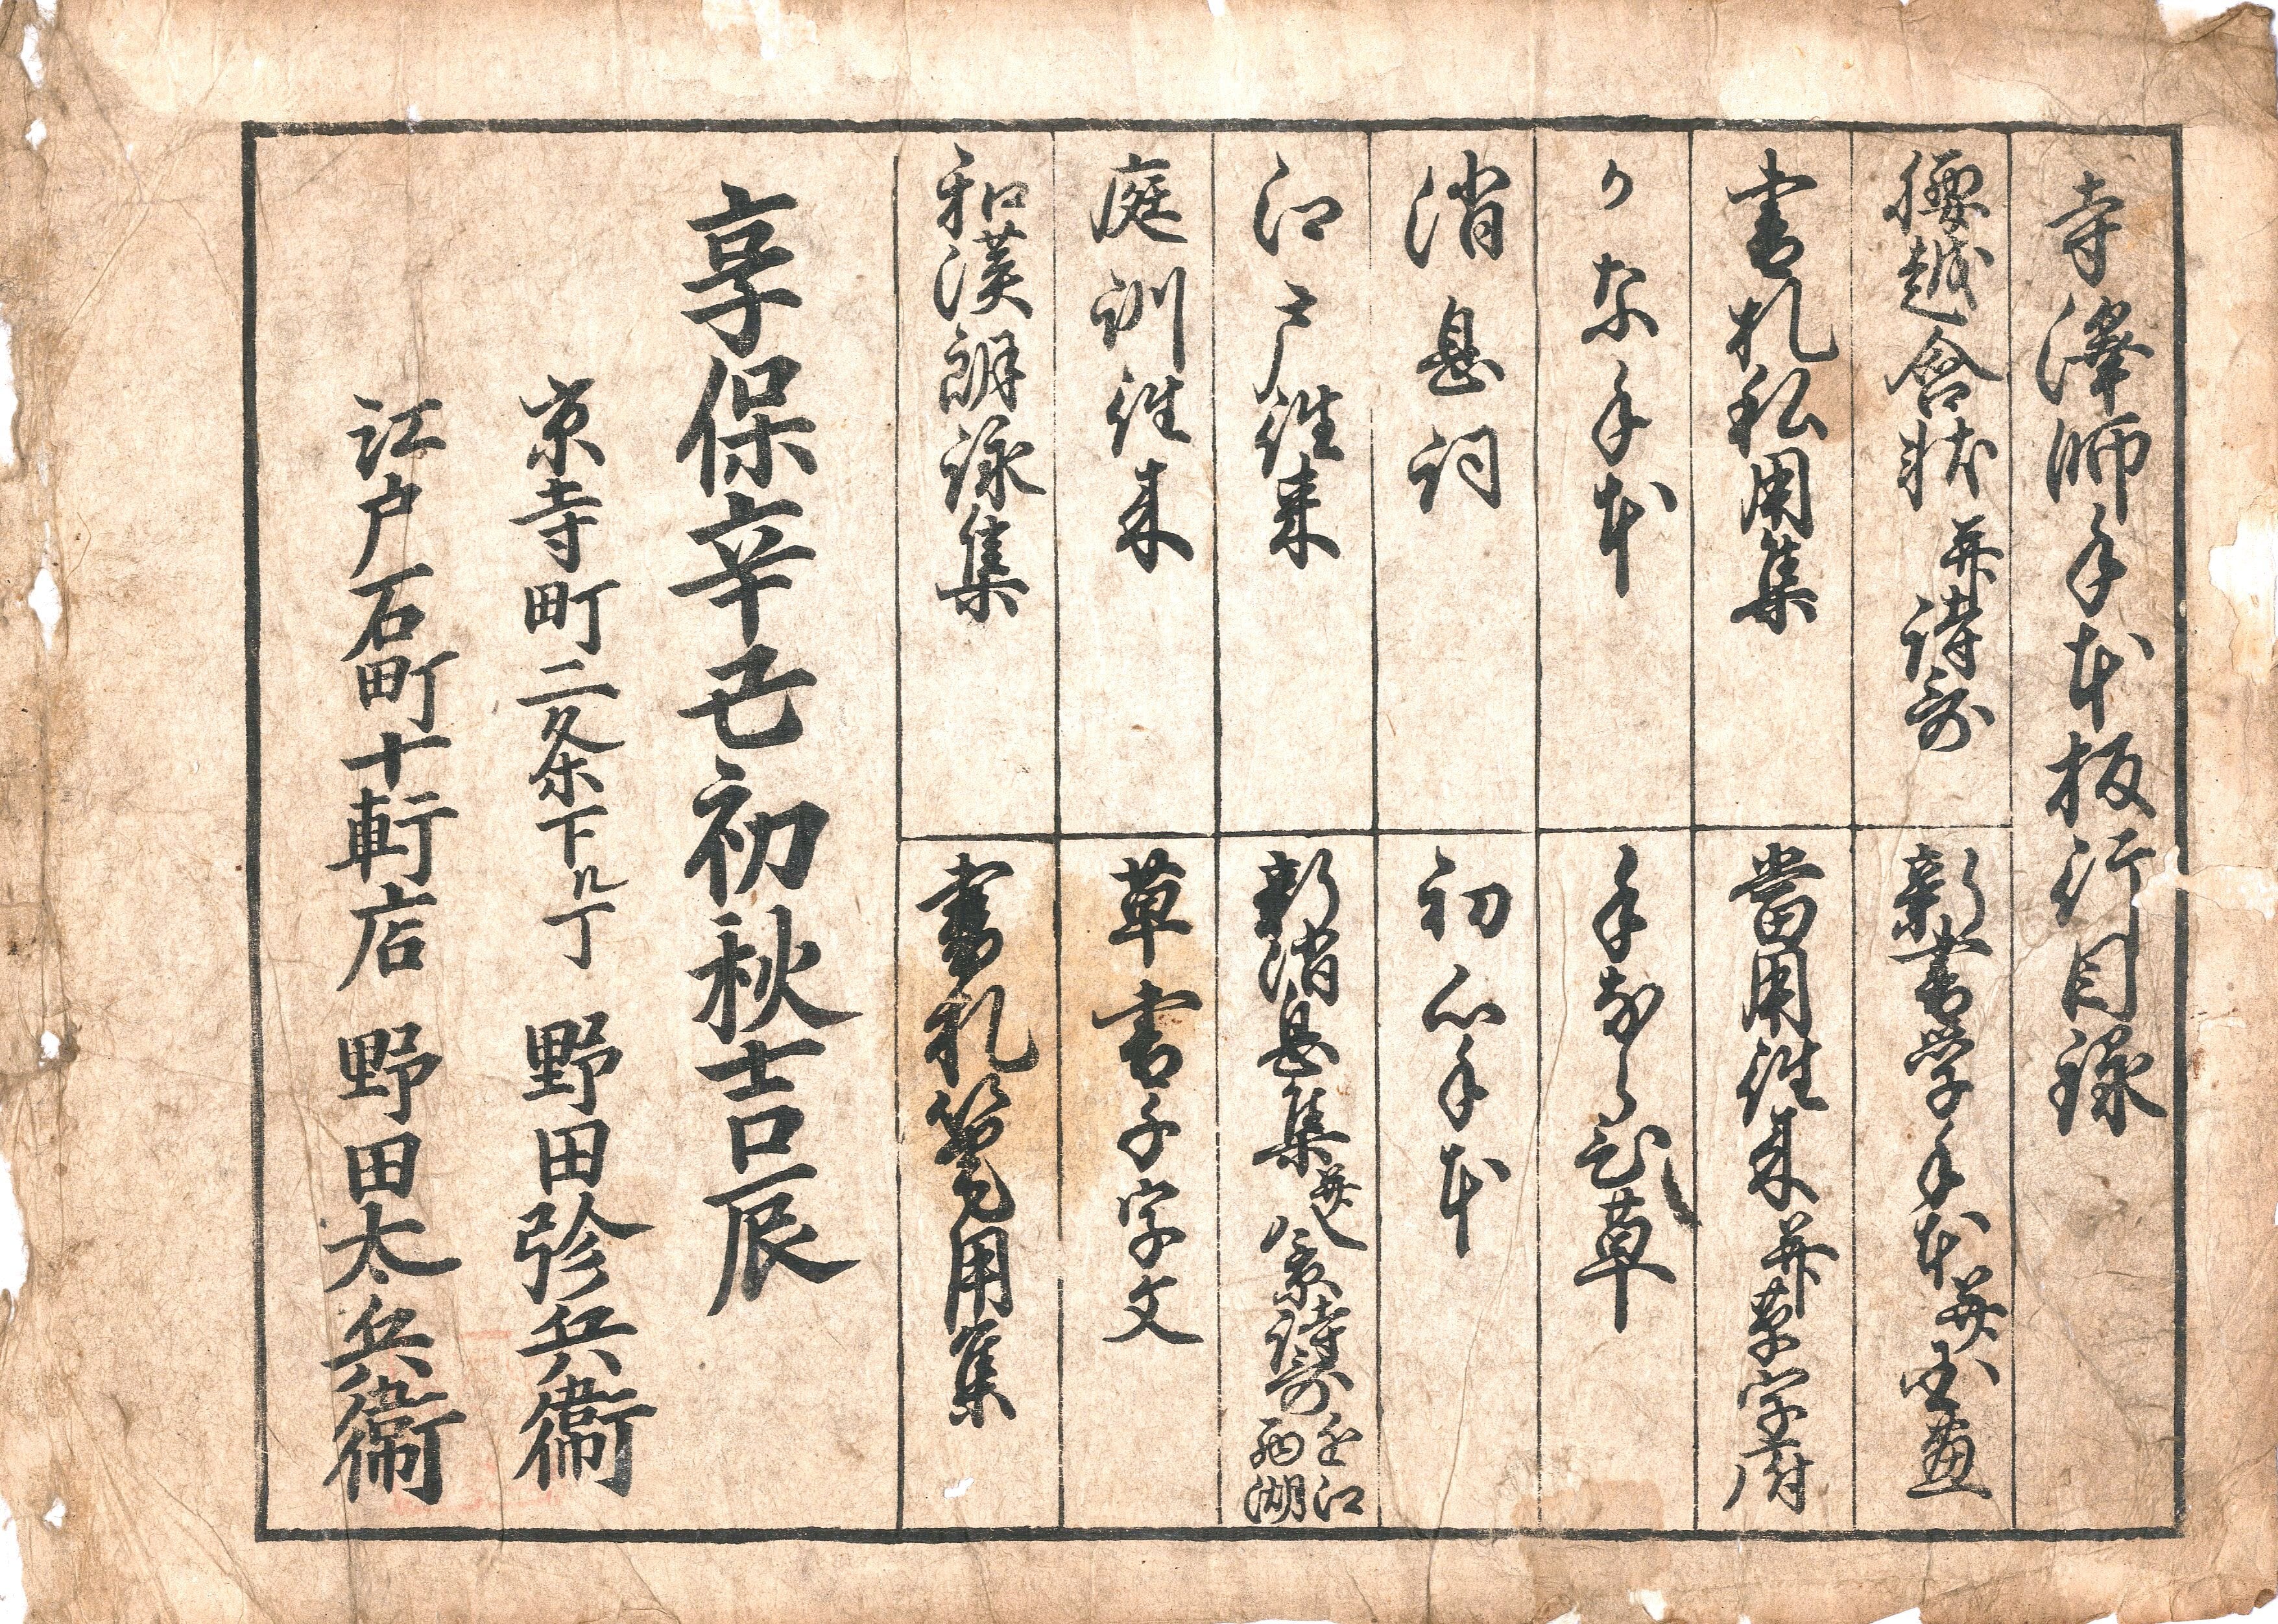 寺澤師手本板行目録
腰越含状 并詩歌
書札私用集
かな手本
消息詞
江戸往来
庭訓往来
和漢朗詠集
新書学手本 并 画
當用往来 并 草字
手ならひ草
初心手本
新消息集 并 八景詩歌 近江 西湖
草書千字文
書札筆用集
享保辛丑初秋吉辰
京寺町二条下ル丁 野田弥兵衛
江戸石町十軒店 野田太兵衛